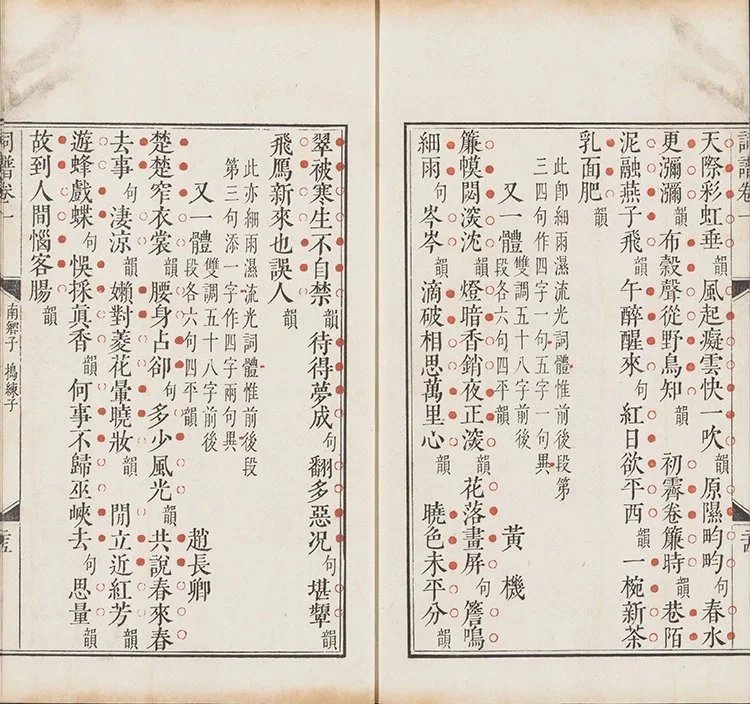 詞譜卷一
天際彩虹垂韻風起癡雲快一吹韻原隰畇畇句春水
更瀰瀰韻布穀聲從野鳥知韻初霽卷簾時韻巷陌
泥融燕子飛韻午醉醒來句紅日欲平西韻一椀新茶
乳面肥韻
此卽細雨濕流光詞體惟前後段第
三四句作四字一句五字一句異
又一體雙調五十八字前後
段各六句四平韻黃機
簾幙悶深沈韻燈暗香銷夜正深韻花落畫屏句簷鳴
細雨句岑岑韻滴破相思萬里心韻曉色未平分韻
翠被寒生不自禁韻待得夢成句翻多惡况句堪顰韻
飛鴈新來也誤人韻
此亦細雨濕流光詞體惟前後段
第三句添一字作四字兩句異
又一體雙調五十八字前後
段各六句四平韻趙長卿
楚楚窄衣裳韻腰身占卻句多少風光韻共說春來春
去事句淒涼韻嬾對菱花暈曉妝韻閒立近紅芳韻
遊蜂戲蝶句悞採眞香韻何事不歸巫峽去句思量韻
故到人間惱客腸韻
詞譜卷一
南鄉子 搗練子